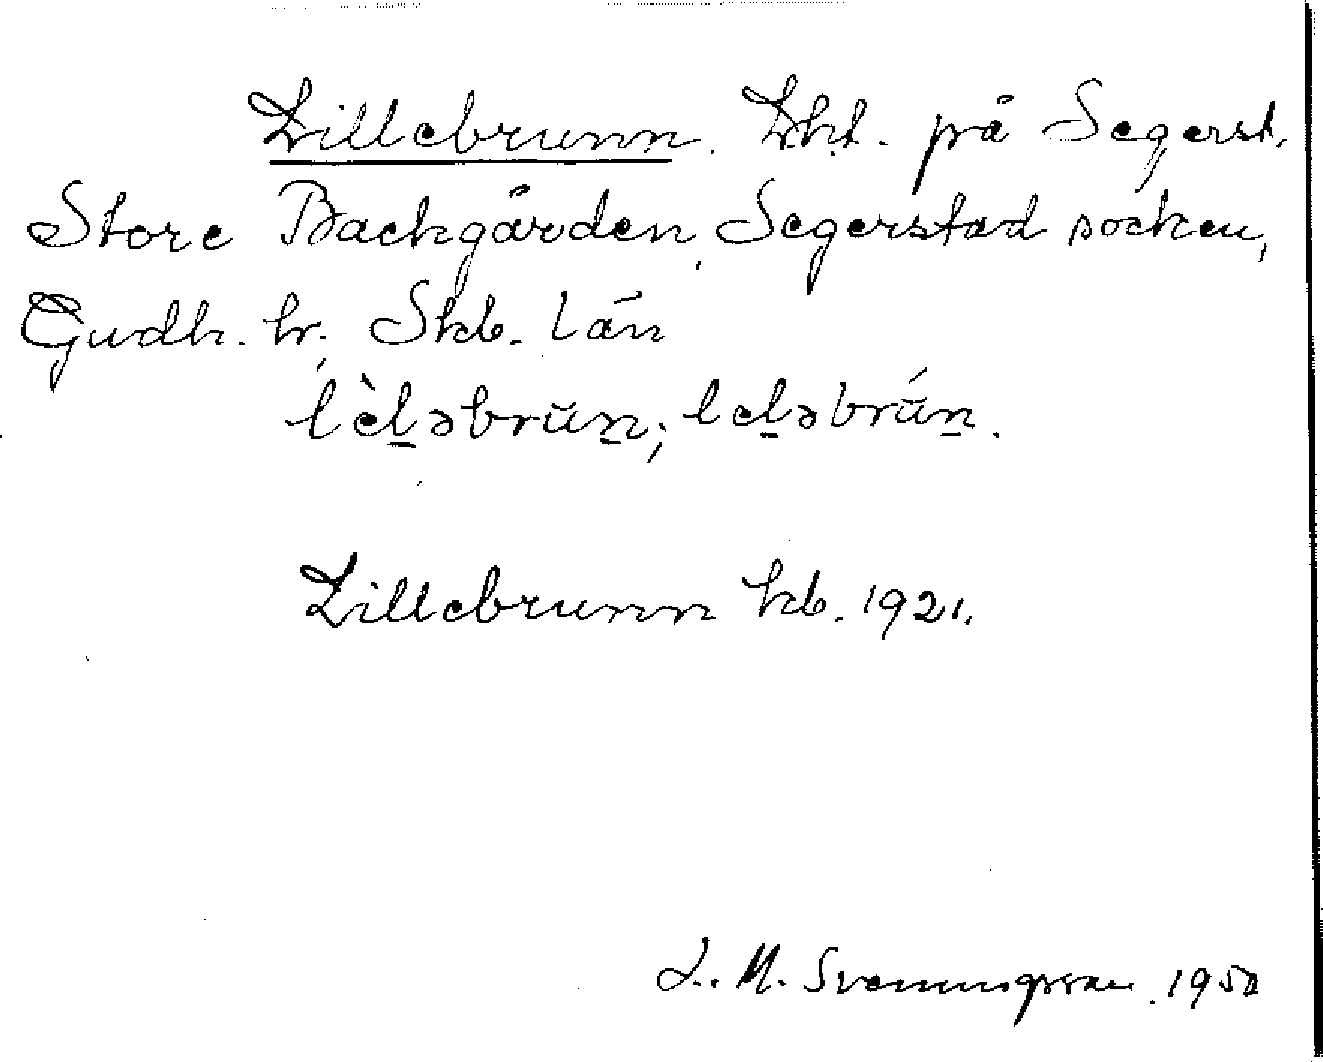 Lillebrunn. Lht. på Segerst.
Store Backgården, Segerstad socken,
Gudh. hr. Skb. län
lèl̲əbrŭn̲; lel̲əbrŭ́n̲.
Lillebrunn kb. 1921.
L. M. Svenungsson 1950